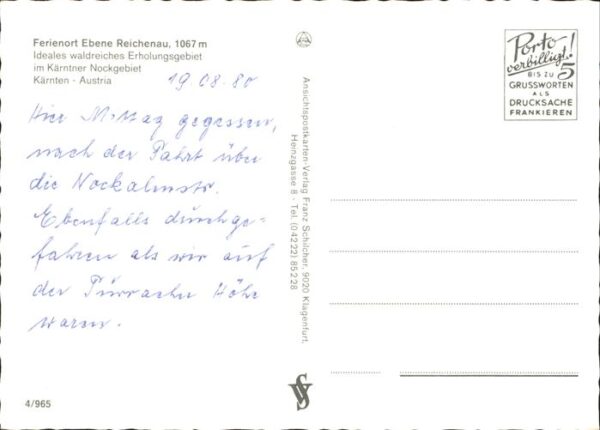 Ferienort Ebene Reichenau, 1067 m
Ideales waldreiches Erholungsgebiet
im Kärntner Nockgebiet
Kärnten - Austria
19 08. 80
Hier Mittag gegessen,
nach der Fahrt über
die Nockalmstr.
Ebenfalls durchge=
fahren als wir auf
der Turrache Höhe
waren.
4/965
Ansichtspostkarten-Verlag Franz Schilcher, 9020 Klagenfurt,
Heinzgasse 8 · Tel. (0 42 22) 85 2 28
Porto
verbilligt!
BIS ZU 5
GRUSSWORTEN
ALS
DRUCKSACHE
FRANKIEREN